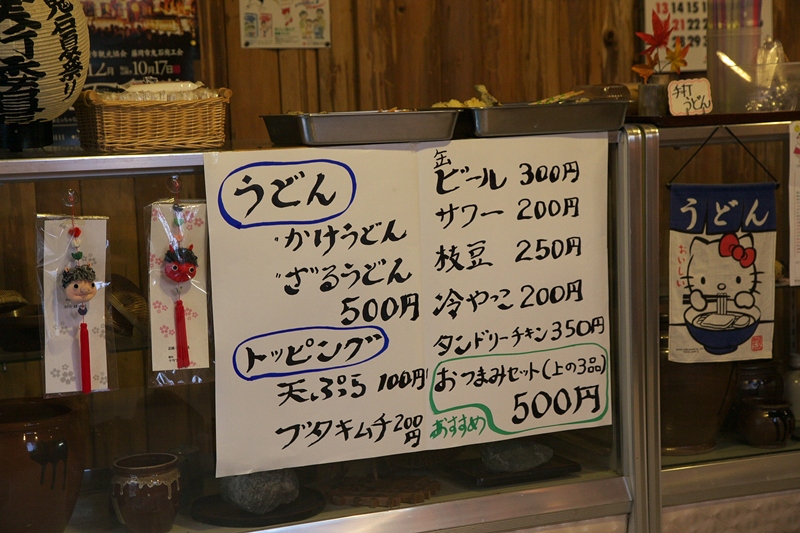 鬼石夏祭り
藤岡市鬼石商工会
10月17日
13 14
手打
うどん
うどん
かけうどん
ざるうどん
500円
トッピング
天ぷら 100円
ブタキムチ 200円
缶ビール 300円
サワー 200円
枝豆 250円
冷やっこ 200円
タンドリーチキン 350円
おつまみセット(上の3品)
500円
おすすめ
うどん
おいしい